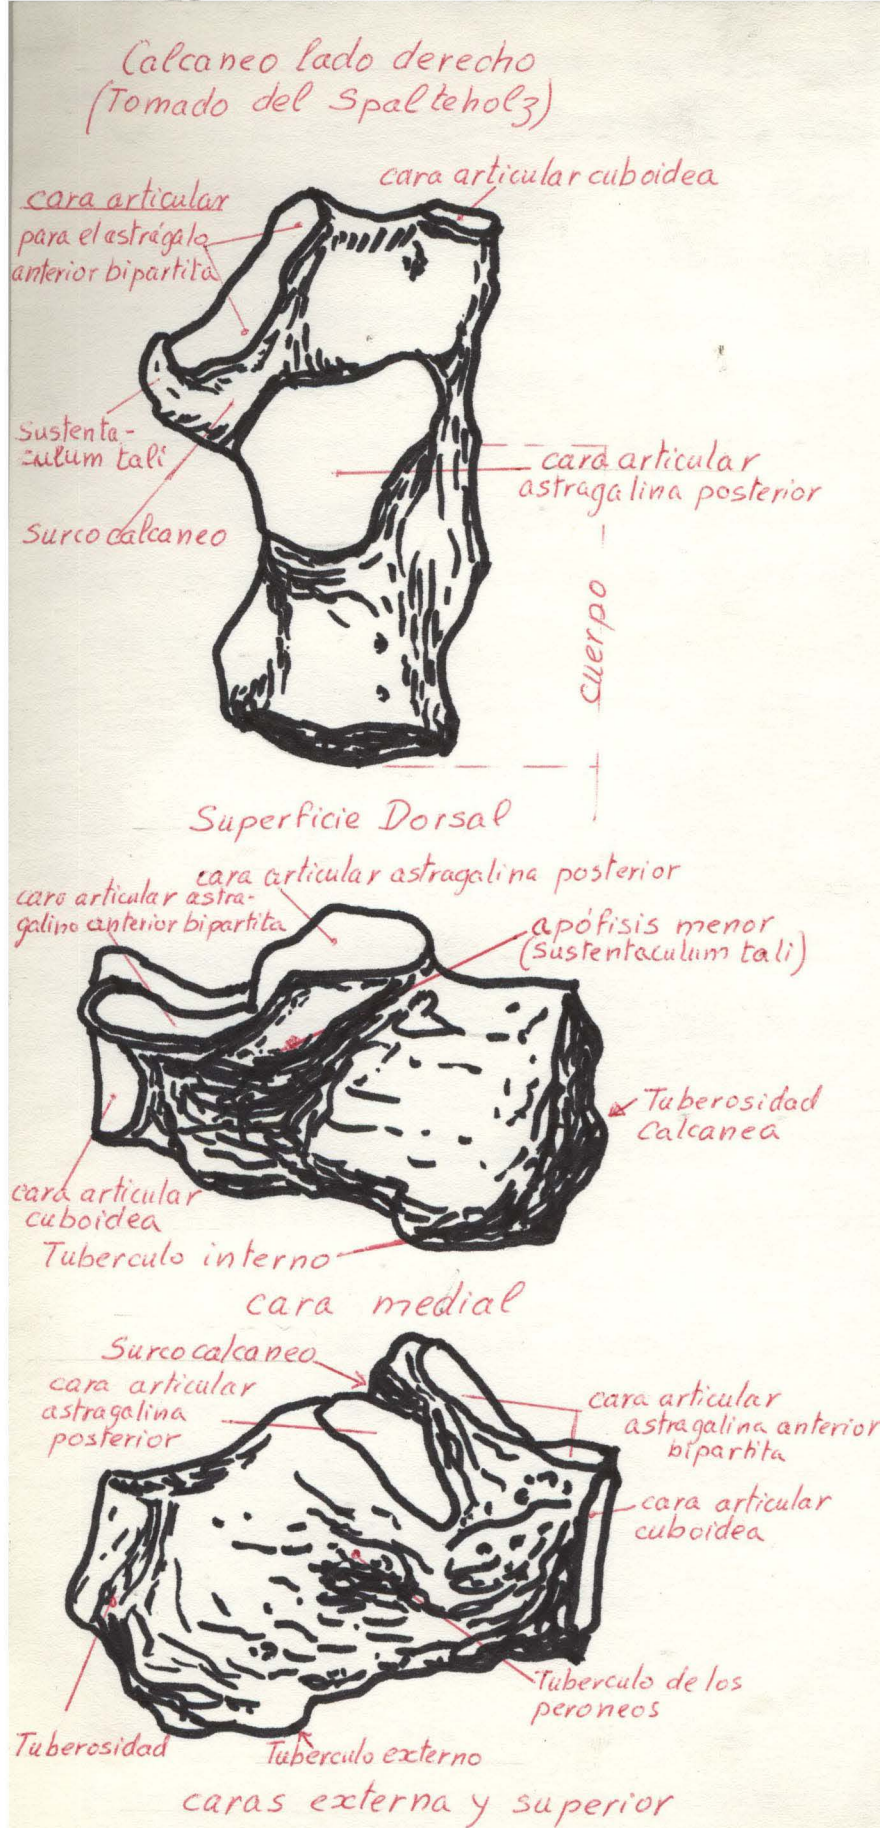 Calcaneo lado derecho
(Tomado del Spalteholz)
cara articular cuboidea
cara articular
para el astrágalo
anterior bipartita
Sustenta-
culum tali
Surco calcaneo
cara articular
astragalina posterior
cuerpo
Superficie Dorsal
cara articular astragalina posterior
cara articular astra-
galino anterior bipartita
apófisis menor
(sustentaculum tali)
Tuberosidad
Calcanea
cara articular
cuboidea
Tuberculo interno
cara medial
Surco calcaneo
cara articular
astragalina
posterior
cara articular
astragalina anterior
bipartita
cara articular
cuboidea
Tuberculo de los
peroneos
Tuberosidad
Tuberculo externo
caras externa y superior